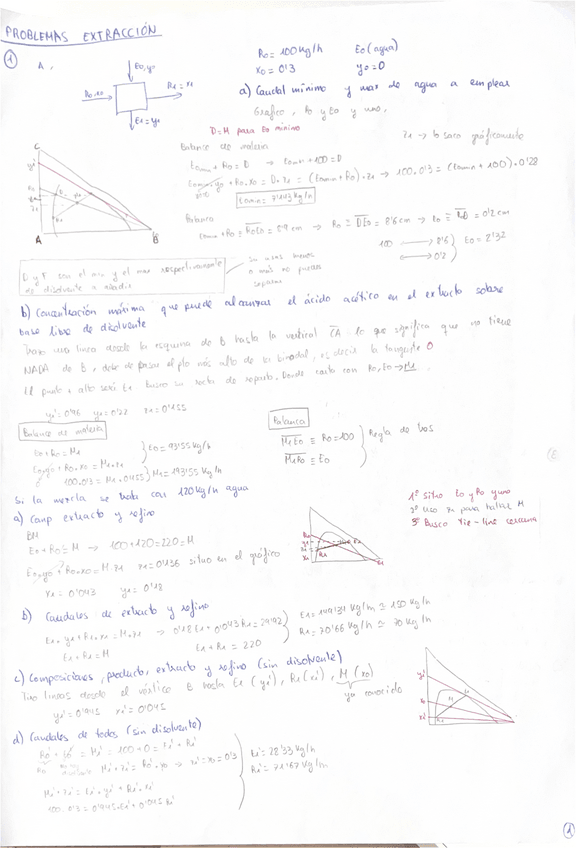 PROBLEMAS EXTRACCIÓN
① A.
E0, y0
R0, x0
R1 = x1
E1 = y1
R0 = 100 kg/h E0 (agua)
x0 = 0'3 y0 = 0
a) Caudal mínimo y max de agua a emplear
Grafico, R0 y E0 y uno.
D = M para E0 mínimo
z1 → lo saco gráficamente
Balance de materia
E0min + R0 = D → E0min + 100 = D
E0min·y0 + R0·x0 = D·z1 = (E0min + R0)·z1 → 100·0'3 = (E0min + 100)·0'28
E0min = 7'143 kg/h
Palanca
E0min + R0 ≡ R0E0 = 8'9 cm → R0 ≡ DE0 = 8'6 cm → E0 ≡ R0D = 0'2 cm
100 → 8'6
← 0'2
E0 = 2'32
C
A
B
D y F son el min y el max respectivamente
de disolvente a añadir
Si usas menos
o más no puedes
separar
b) Concentración máxima que puede alcanzar el ácido acético en el extracto sobre
base libre de disolvente
Trazo una línea desde la esquina de B hasta la vertical CA lo que significa que no tiene
NADA de B, debe de pasar el pto más alto de la binodal, es decir la tangente
El punto + alto será E1 busco su recta de reparto. Donde corta con R0, E0 → M1.
y1' = 0'96 y1 = 0'22 z1 = 0'155
Balance de materia
E0 + R0 = M1
E0·y0 + R0·x0 = M1·z1
100·0'3 = M1·0'155
E0 = 93'55 kg/h
M1 = 193'55 kg/h
Palanca
M1E0 ≡ R0 = 100
M1R0 ≡ E0
Regla de tres
Si la mezcla se trata con 120 kg/h agua
a) Comp extracto y refino
BM
E0 + R0 = M → 100 + 120 = 220 = M
E0·y0 + R0·x0 = M·z1 z1 = 0'136 situo en el gráfico
x1 = 0'043 y1 = 0'18
1º Sitúo E0 y R0 y uno
2º Uso z1 para hallar M
3º Busco tie-line cercana
b) Caudales de extracto y refino
E1·y1 + R1·x1 = M·z1 → 0'18 E1 + 0'043 R1 = 29'92
E1 + R1 = M E1 + R1 = 220
E1 = 149'34 kg/h ≅ 150 kg/h
R1 = 70'66 kg/h ≅ 70 kg/h
c) Composiciones, producto, extracto y refino (sin disolvente)
Tiro lineas desde el vértice B hasta E1 (y1'), R1 (x1'), M (x0)
ya conocido
y1' = 0'945 x1' = 0'045
d) Caudales de todos (sin disolvente)
R0' + E0' = M1' = 100 + 0 = E1' + R1'
M1'·z1' = R0'·x0 → z1' = x0 = 0'3
M1'·z1' = E1'·y1' + R1'·x1'
100·0'3 = 0'945·E1' + 0'045 R1'
E1' = 28'33 kg/h
R1' = 71'67 kg/h
①